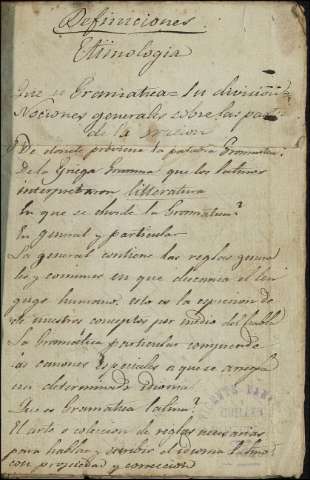 Definiciones
Etimologia
Que es Gramatica = Su division =
Nociones generales sobre las partes
de la oracion
De donde proviene la palabra Gramatica?
De la Griega Gramma que los latinos
interpretaron litteratura
En que se divide la Gramatica?
En general y particular
La general contiene las reglas genera
les y comunes en que el len
guage humano, esto es la espresion de
de nuestros conceptos por medio del habla
La Gramática particular comprende
los canones especiales a que se arregla
un determinado idioma
Que es Gramatica latina?
El arte o coleccion de reglas necesarias
para hablar y escribir el idioma latino
con propiedad y correccion